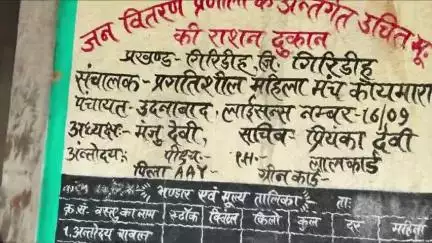 जन वितरण प्रणाली के अन्तर्गत उचित मू.
की राशन दुकान
प्रखण्ड- गिरिडीह, जि. गिरिडीह
संचालक- प्रगतिशील महिला मंच कोयमारा
पंचायत- उदनाबाद, लाईसेन्स नम्बर-16/09
अध्यक्ष- मंजु देवी, सचिव- प्रियंका देवी
अंत्योदय: पीएच- लालकार्ड
पिला AAY- ग्रीन कार्ड-
भण्डार एवं मूल्य तालिका ता:
क्र.सं. वस्तु का नाम स्टॉक किलो कुल दर
1. अन्तोदय चावल